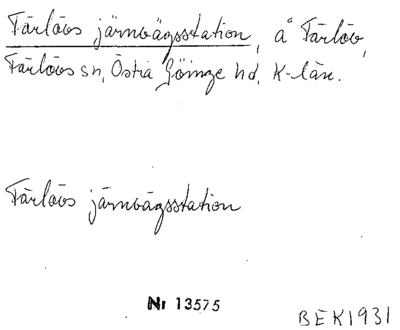 Färlövs järnvägsstation, å Färlöv,
Färlövs sn, Östra Göinge hd, K-län.
Färlövs järnvägsstation
Nr 13575
BEK1931